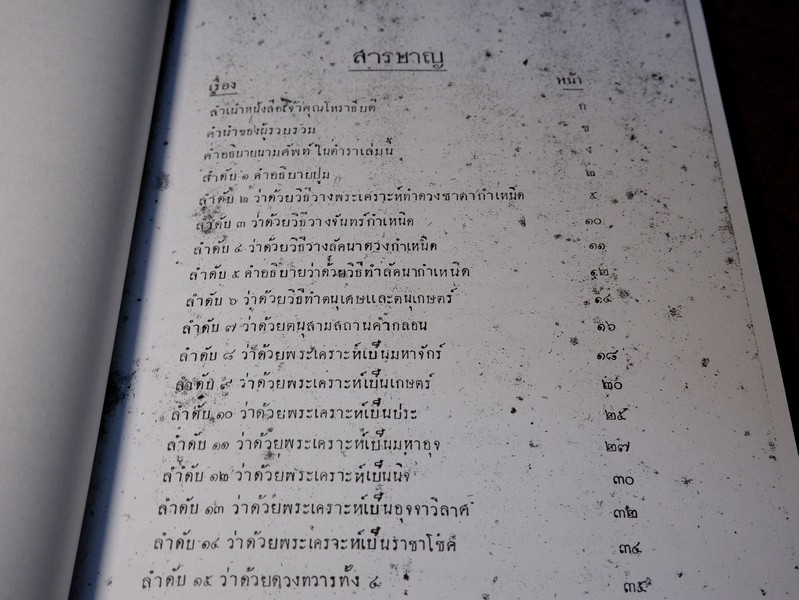 สารษาญ
เรื่อง หน้า
สำเนาหนังสือเจ้าคุณโหราธิบดี ก
คำนำของผู้รวบรวม ข
คำอธิบายนามศัพท์ ในตำราเล่มนี้ ง
ลำดับ ๑ คำอธิบายปูม ๒
ลำดับ ๒ ว่าด้วยวิธีวางพระเคราะห์ทำดวงชาตากำเหนิด ๕
ลำดับ ๓ ว่าด้วยวิธีวางจันทร์กำเหนิด ๑๐
ลำดับ ๔ ว่าด้วยวิธีวางลัคนาดวงกำเหนิด ๑๑
ลำดับ ๕ คำอธิบายว่าด้วยวิธีทำลัคนากำเหนิด ๑๒
ลำดับ ๖ ว่าด้วยวิธีทำตนุเศษและตนุเกษตร์ ๑๔
ลำดับ ๗ ว่าด้วยตนุสามสถานคำกลอน ๑๖
ลำดับ ๘ ว่าด้วยพระเคราะห์เป็นมหาจักร์ ๑๘
ลำดับ ๙ ว่าด้วยพระเคราะห์เป็นเกษตร์ ๒๐
ลำดับ ๑๐ ว่าด้วยพระเคราะห์เป็นประ ๒๕
ลำดับ ๑๑ ว่าด้วยพระเคราะห์เป็นมหาอุจ ๒๗
ลำดับ ๑๒ ว่าด้วยพระเคราะห์เป็นนิจ ๓๐
ลำดับ ๑๓ ว่าด้วยพระเคราะห์เป็นอุจจาวิลาศ ๓๒
ลำดับ ๑๔ ว่าด้วยพระเครจะห์เป็นราชาโชค ๓๔
ลำดับ ๑๕ ว่าด้วยดวงทวารทั้ง ๔ ๓๕